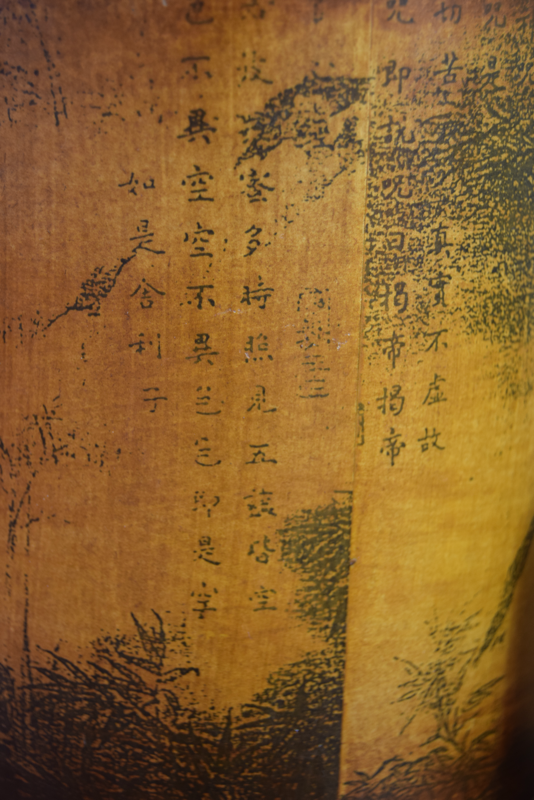 咒是
切苦真實不虛故
咒即說咒曰揭帝揭帝
波蜜多時照見五蘊皆空
色不異空空不異色色即是空
如是舍利子